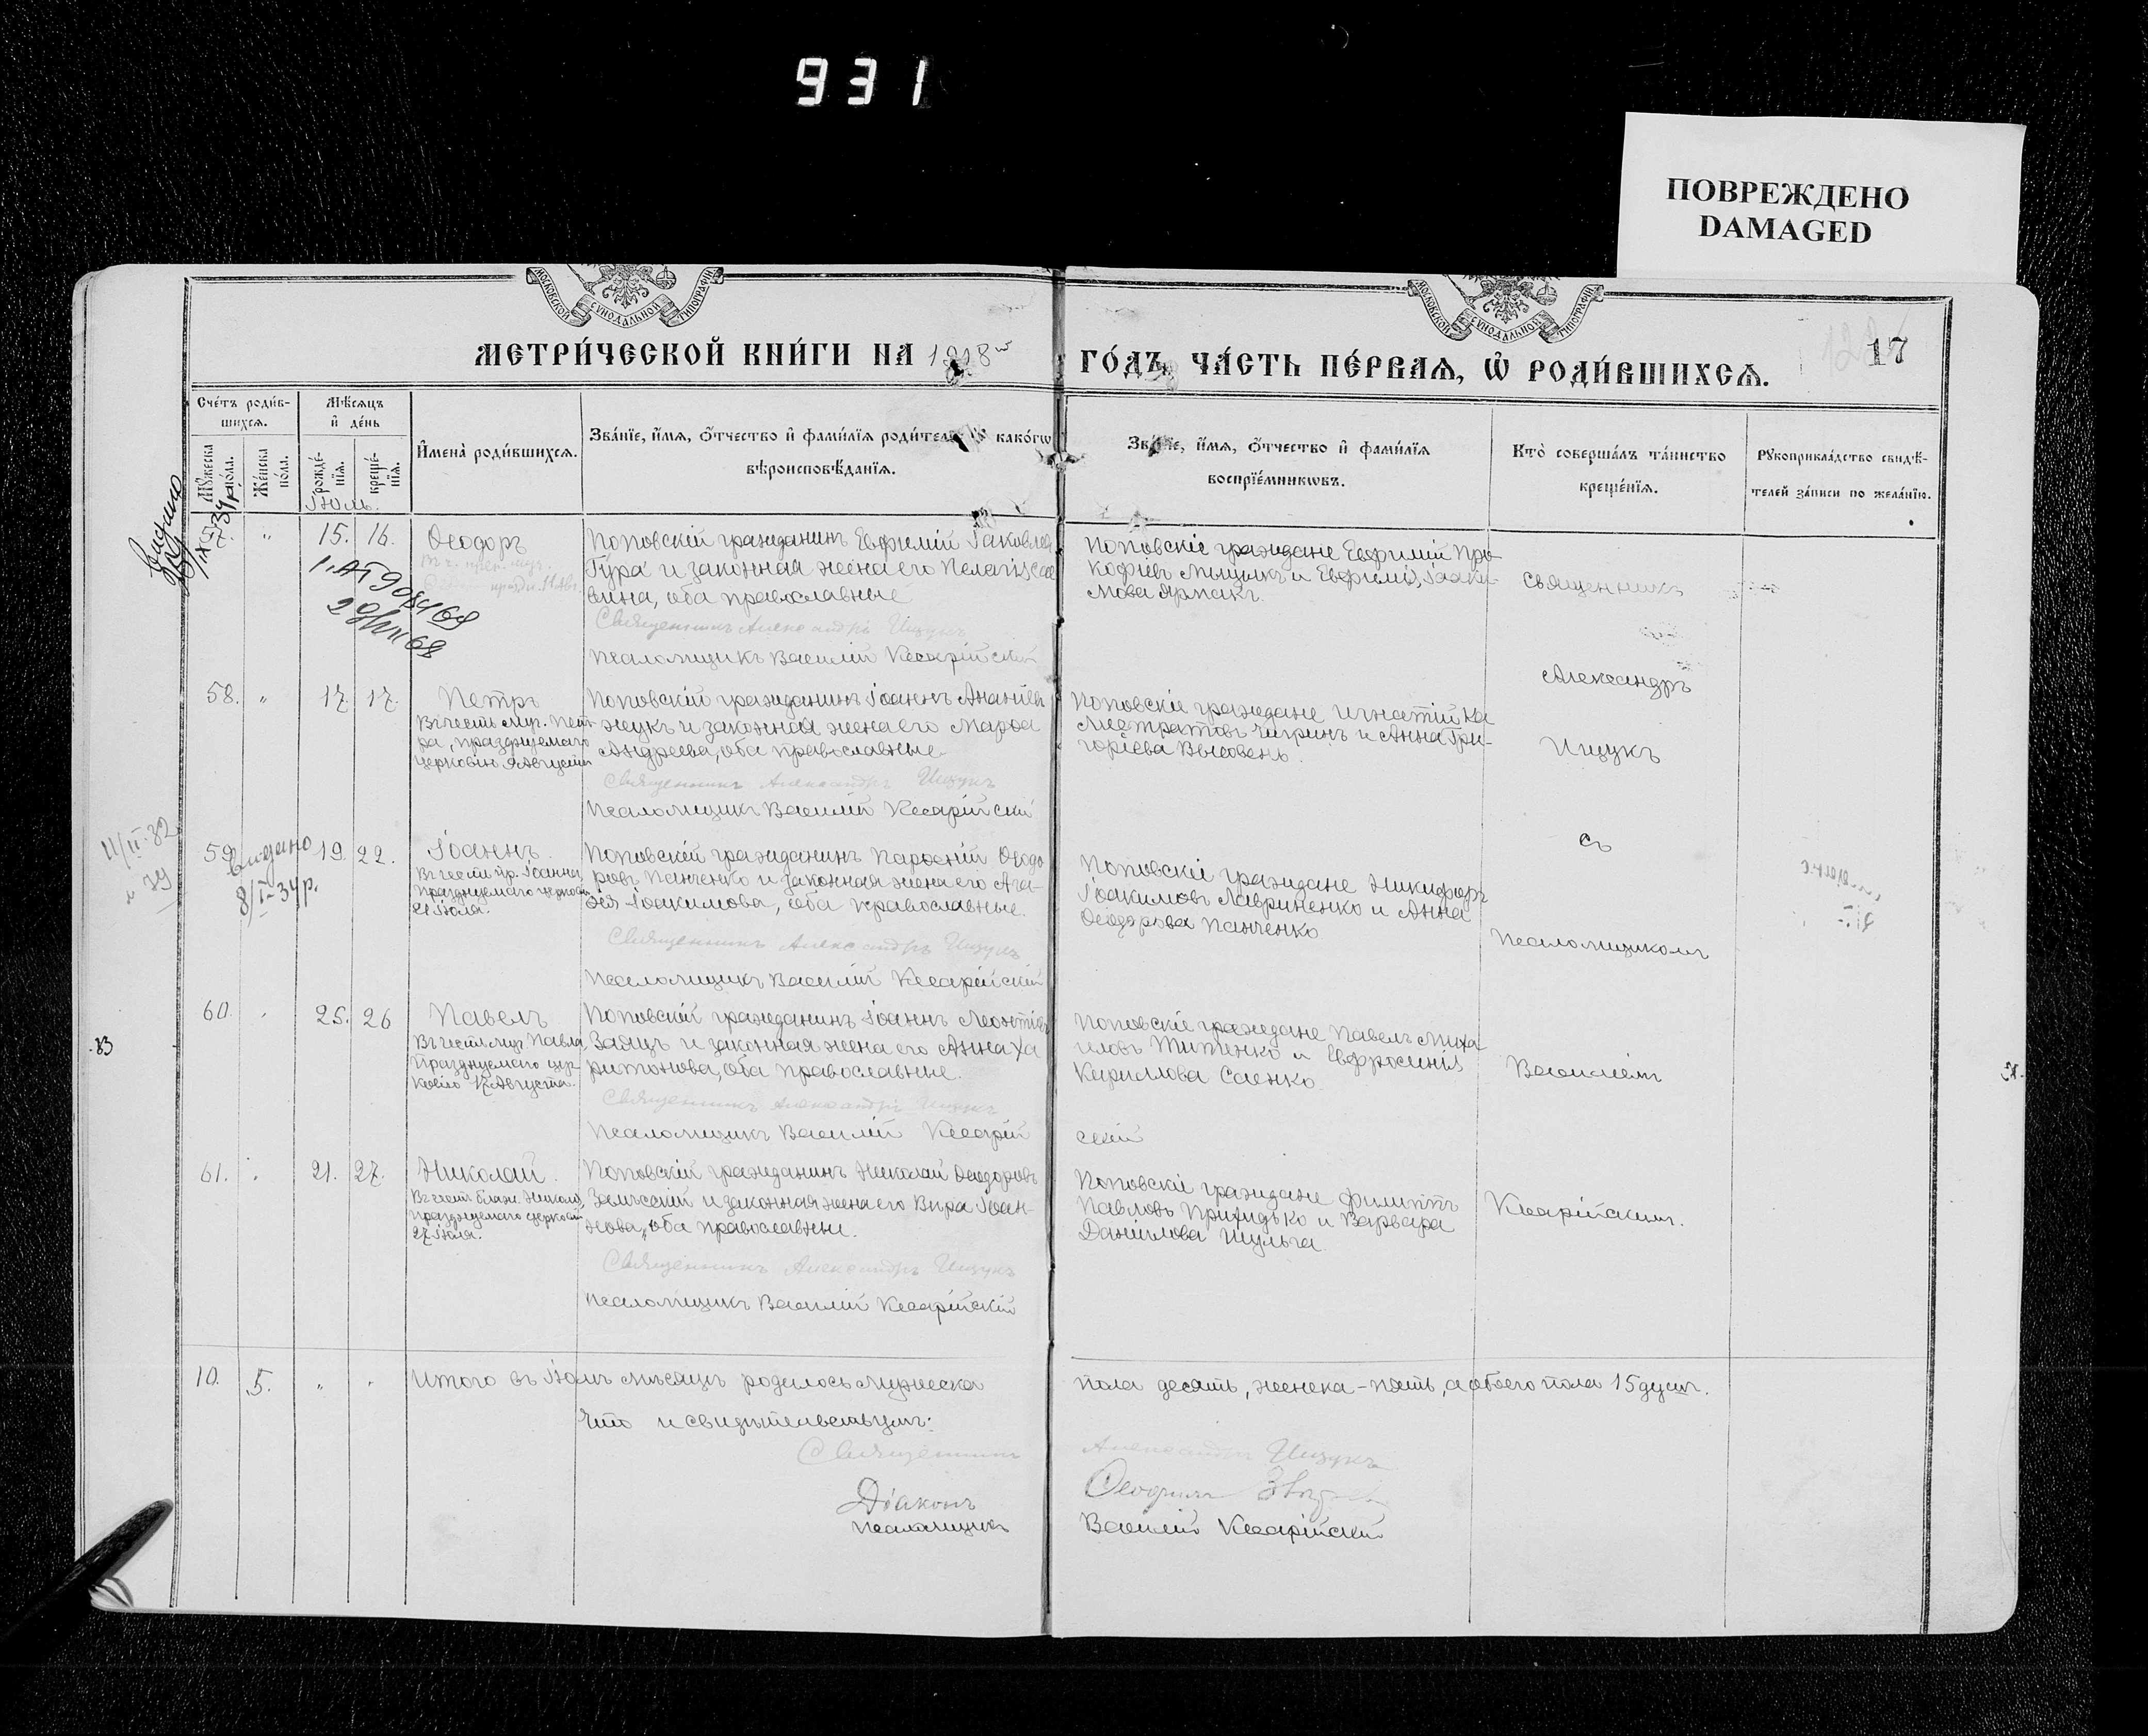 931
ПОВРЕЖДЕНО
DAMAGED
МОСКОВСКОЙ СѴНОДАЛЬНОЙ ТИПОГРАФІИ
МОСКОВСКОЙ СѴНОДАЛЬНОЙ ТИПОГРАФІИ
МЕТРИ́ЧЕСКОЙ КНИ́ГИ НА 1918й ГО́ДЪ, ЧА́СТЬ ПЕ́РВАѦ, Ѡ РОДИ́ВШИХСѦ.
17
Сче́тъ роди́в-
шихсѧ.
Мꙋ́жеска по́ла.
Же́нска по́ла.
Мѣ́сѧцъ
и҆ де́нь
рожде́-
нїѧ.
креще́-
нїѧ.
И҆мена̀ роди́вшихсѧ.
Зва́нїе, и҆́мѧ, ѻ҆́тчество и҆ фами́лїѧ роди́тел како́гѡ
вѣроисповѣ́данїѧ.
Зва́нїе, и҆́мѧ, ѻ҆́тчество и҆ фами́лїѧ
воспрїе́мникѡвъ.
Кто̀ соверша́лъ та́инство
креще́нїѧ.
Рꙋкоприкла́дство свидѣ́-
телей за́писи по жела́нїю.
Іюль.
57. " 15. 16. Ѳеодоръ
Поповскій гражданинъ Евфимій Іаковлев
Гура и законная жена его Пелагія Сав
вина, оба православные
Священникъ Александръ Ищукъ
Псаломщикъ Василій Кесарійскій
Поповскіе граждане Евфимій Про-
кофіевъ Мищукъ и Евфимія Іоаки-
мова Ярмакъ.
Священникъ
Александръ
58. " 17. 17. Петръ
Въ честь муч. Пет-
ра, празднуемаго
церковію 9 Августа
Поповскій гражданинъ Іоаннъ Ананіев
жукъ и законная жена его Марѳа
Андреева, оба православные
Священникъ Александръ Ищукъ
Псаломщикъ Василій Кесарійскій
Поповскіе граждане Игнатій Ка
листратовъ Чигринъ и Анна Гри-
горіева Высовень.
Ищукъ
съ
11/II-82
59. видано 19. 22. Іоаннъ.
8/I-34р.
Въ честь пр. Іоанна,
празднуемаго церковію
21 Іюля.
Поповскій гражданинъ Парѳеній Ѳеодо
ровъ Панченко и законная жена его Ага-
ѳія Іоакимова, оба православные.
Священникъ Александръ Ищукъ
Псаломщикъ Василій Кесарійскій
Поповскіе граждане Никифоръ
Іоакимовъ Лавриненко и Анна
Ѳеодорова Панченко
псаломщикомъ
60. " 25. 26 Павелъ
Въ честь муч. Павла,
празднуемаго цер-
ковію 17 Августа.
Поповскій гражданинъ Іоаннъ Леонтіев
Заяцъ и законная жена его Анна Ха
ритонова, оба православные.
Священникъ Александръ Ищукъ
Псаломщикъ Василій Кесарій скій
Поповскіе граждане Павелъ Миха
иловъ Титенко и Евфросинія
Кириллова Саенко
Василіемъ
61. " 21. 27. Николай.
Въ честь блаж. Николая,
празднуемаго церковію
27 Іюля.
Поповскій гражданинъ Николай Ѳеодоровъ
и законная жена его Вѣра Іоан-
нова, оба православные.
Священникъ Александръ Ищукъ
Псаломщикъ Василій Кесарійскій
Поповскіе граждане Филиппъ
Павловъ Приходько и Варвара
Даніилова Шульга.
Кесарійскимъ.
10. 5. " " Итого въ Іюлѣ мѣсяцѣ родилось мужеска пола десять, женска - пять, а обоего пола 15 душъ.
Что и свидѣтельствуемъ:
Священникъ Александръ Ищукъ
Діаконъ
Псаломщикъ Василій Кесарійскій